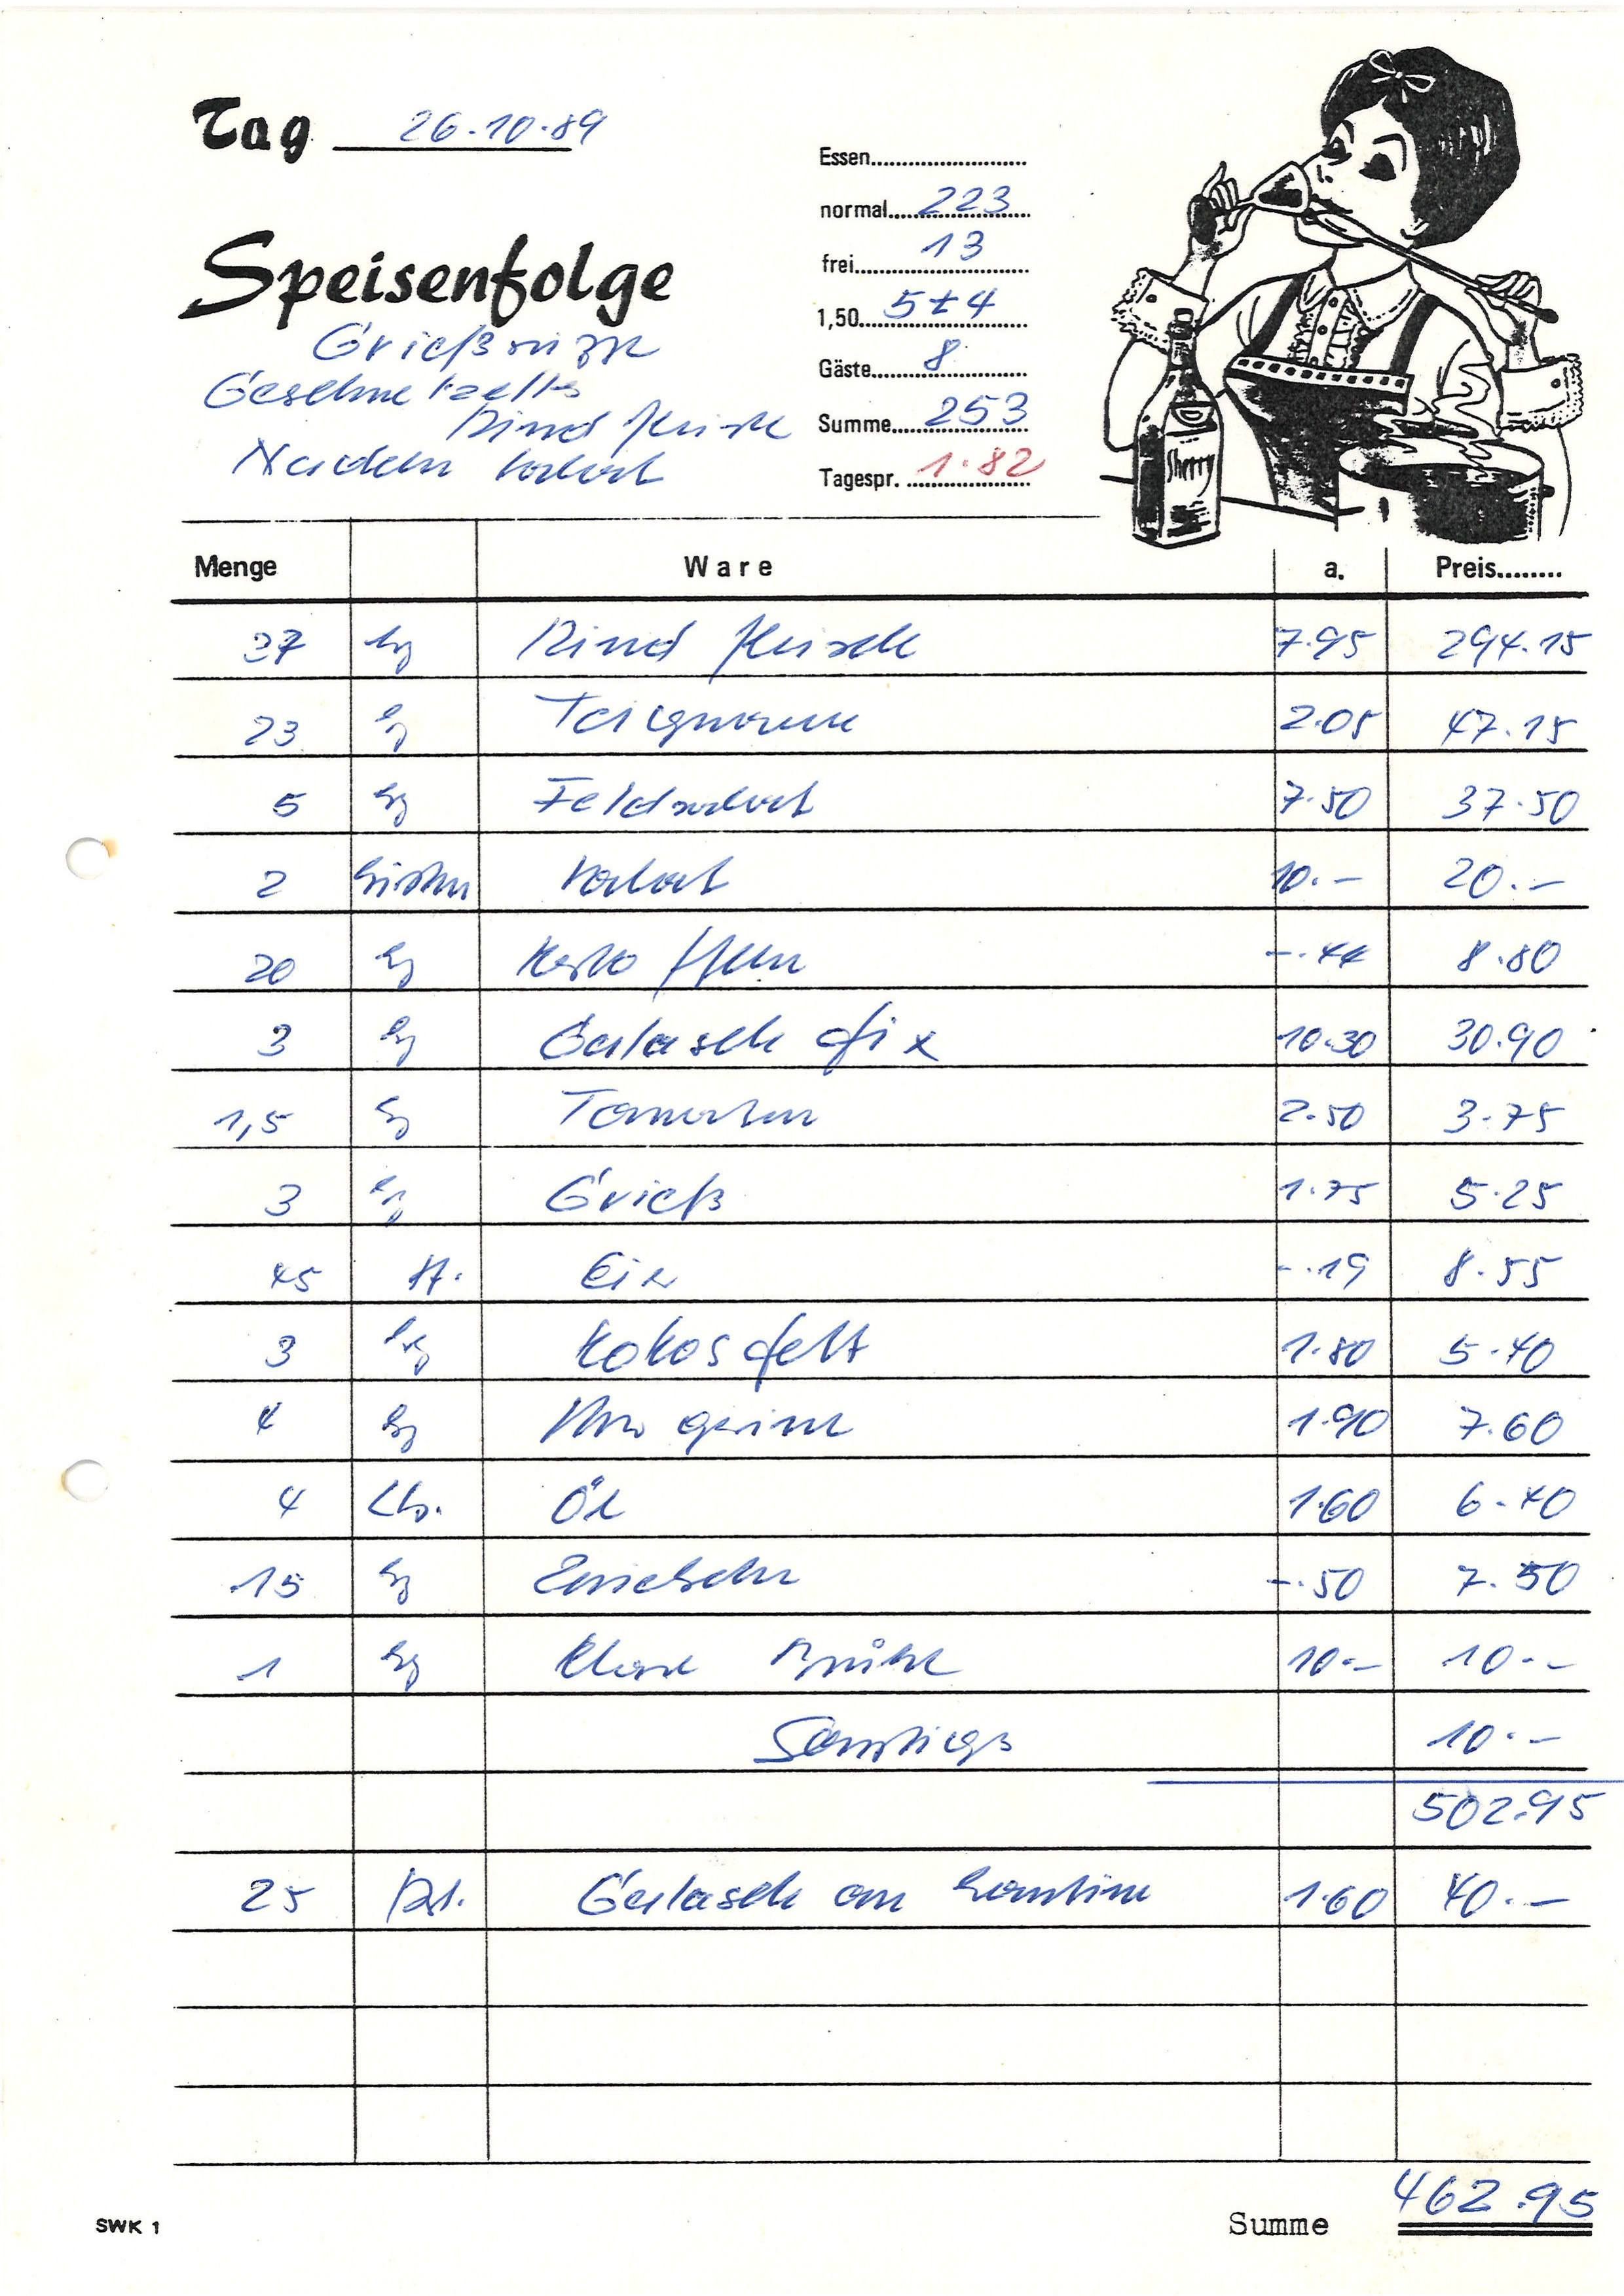 Tag 26.10.89
Speisenfolge
Grießsuppe
Geschnetzeltes
Rindfleisch
Nudeln Salat
Essen
normal 223
frei 13
1,50 5+4
Gäste 8
Summe 253
Tagespr. 1.82
Sherry
Menge Ware a. Preis
37 kg Rindfleisch 7.95 294.15
23 kg Teigwaren 2.05 47.15
5 kg Feldsalat 7.50 37.50
2 Kisten Salat 10.- 20.-
20 kg Kartoffeln -.44 8.80
3 kg Gulasch fix 10.30 30.90
1,5 kg Tomaten 2.50 3.75
3 kg Grieß 1.75 5.25
45 St. Eier -.19 8.55
3 kg Kokosfett 1.80 5.40
4 kg Margarine 1.90 7.60
4 Ltr. Öl 1.60 6.40
15 kg Zwiebeln -.50 7.50
1 kg Klare Brühe 10.- 10.-
Sonstiges 10.-
502.95
25 Gulasch an Kantine 1.60 40.-
SWK 1 Summe 462.95